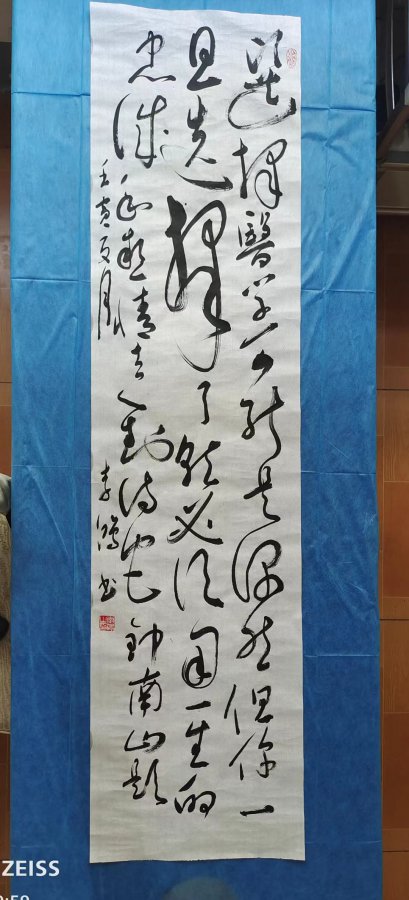 選擇醫学可能是偶然但你一
旦选擇了就必須用一生的
忠诚和熱情去對待它钟南山题
壬寅夏月 李鴻书
ZEISS